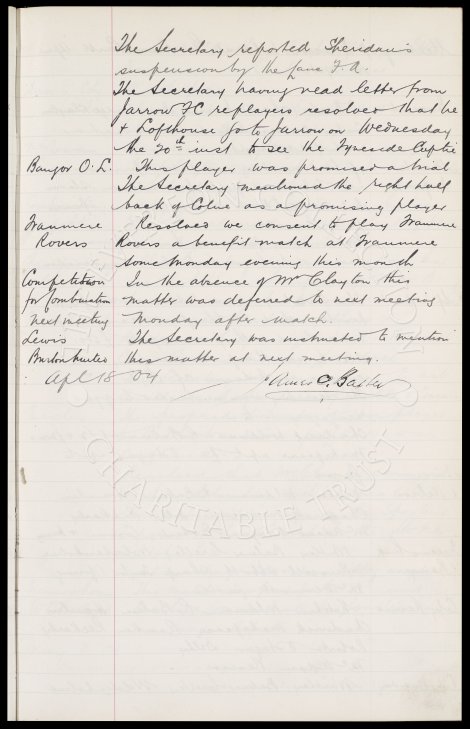 The Secretary reported Sheridan's
suspension by the Lanc F.A.
The Secretary having read letter from
Jarrow FC re players resolved that he
+ Lofthouse go to Jarrow on Wednesday
the 20th inst to see the Tyneside Cuptie
Bangor O.L. This player was promised a trial
The Secretary mentioned the right half
back of Colne as a promising player
Tranmere Resolved we consent to play Tranmere
Rovers Rovers a benefit match at Tranmere
some Monday evening this month
Competition In the absence of Mr Clayton this
for Combination matter was deferred to next meeting
next meeting Monday after match.
Lewis The Secretary was instructed to mention
Burton United this matter at next meeting.
Apl 18 04 James C. Baxter
CHARITABLE TRUST